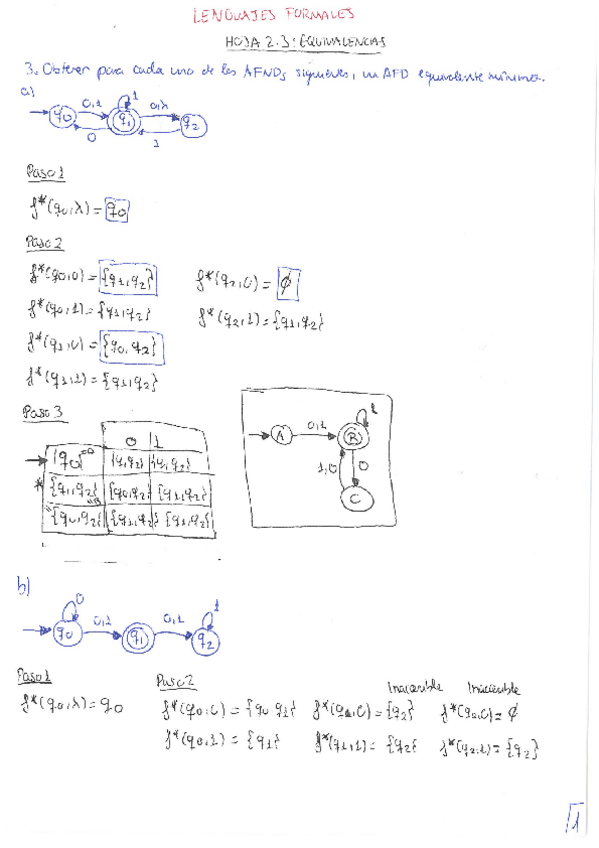 LENGUAJES FORMALES
HOJA 2.3: EQUIVALENCIAS
3. Obtener para cada uno de los AFNDs siguientes, un AFD equivalente mínimo.
a)
q0 0,1 q1 1 0,λ q2
0 1
Paso 1
f*(q0,λ) = q0
Paso 2
f*(q0,0) = {q1,q2} f*(q2,0) = ∅
f*(q0,1) = {q1,q2} f*(q2,1) = {q1,q2}
f*(q1,0) = {q0,q2}
f*(q1,1) = {q1,q2}
Paso 3
0 1
{q0} {q1,q2} {q1,q2}
* {q1,q2} {q0,q2} {q1,q2}
{q0,q2} {q1,q2} {q1,q2}
A 0,1 B 1
1,0 0
C
b)
q0 0 0,1 q1 0,1 q2 1
Paso 1 Paso 2 Inaccesible Inaccesible
f*(q0,λ) = q0 f*(q0,0) = {q0 q1} f*(q1,0) = {q2} f*(q2,0) = ∅
f*(q0,1) = {q1} f*(q1,1) = {q2} f*(q2,1) = {q2}
1